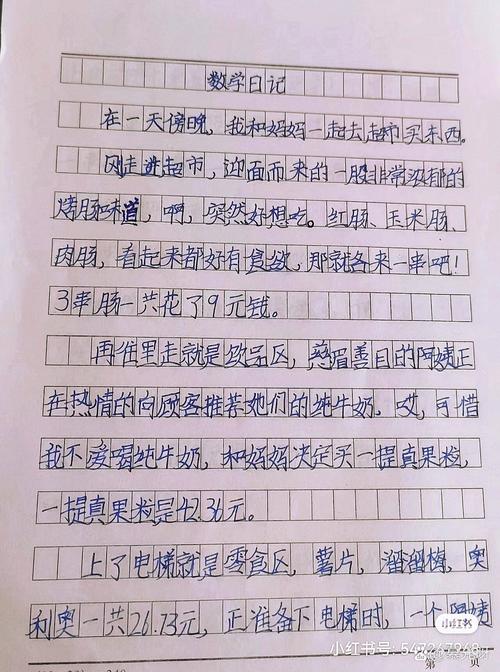 数学日记
在一天傍晚，我和妈妈一起去超市买东西。
刚走进超市，迎面而来的一股非常浓郁的
烤肠味道，啊，突然好想吃。红肠、玉米肠、
肉肠，看起来都好有食欲，那就各来一串吧！
3串肠一共花了9元钱。
再往里走就是饮品区，慈眉善目的阿姨正
在热情的向顾客推荐她们的纯牛奶。哎，可惜
我不爱喝纯牛奶，和妈妈决定买一提真果粒，
一提真果粒是42.36元。
上了电梯就是零食区，薯片，溜溜梅，奥
利奥一共26.73元，正准备下电梯时，一个阿姨
小红书
小红书号：547267868
第 页